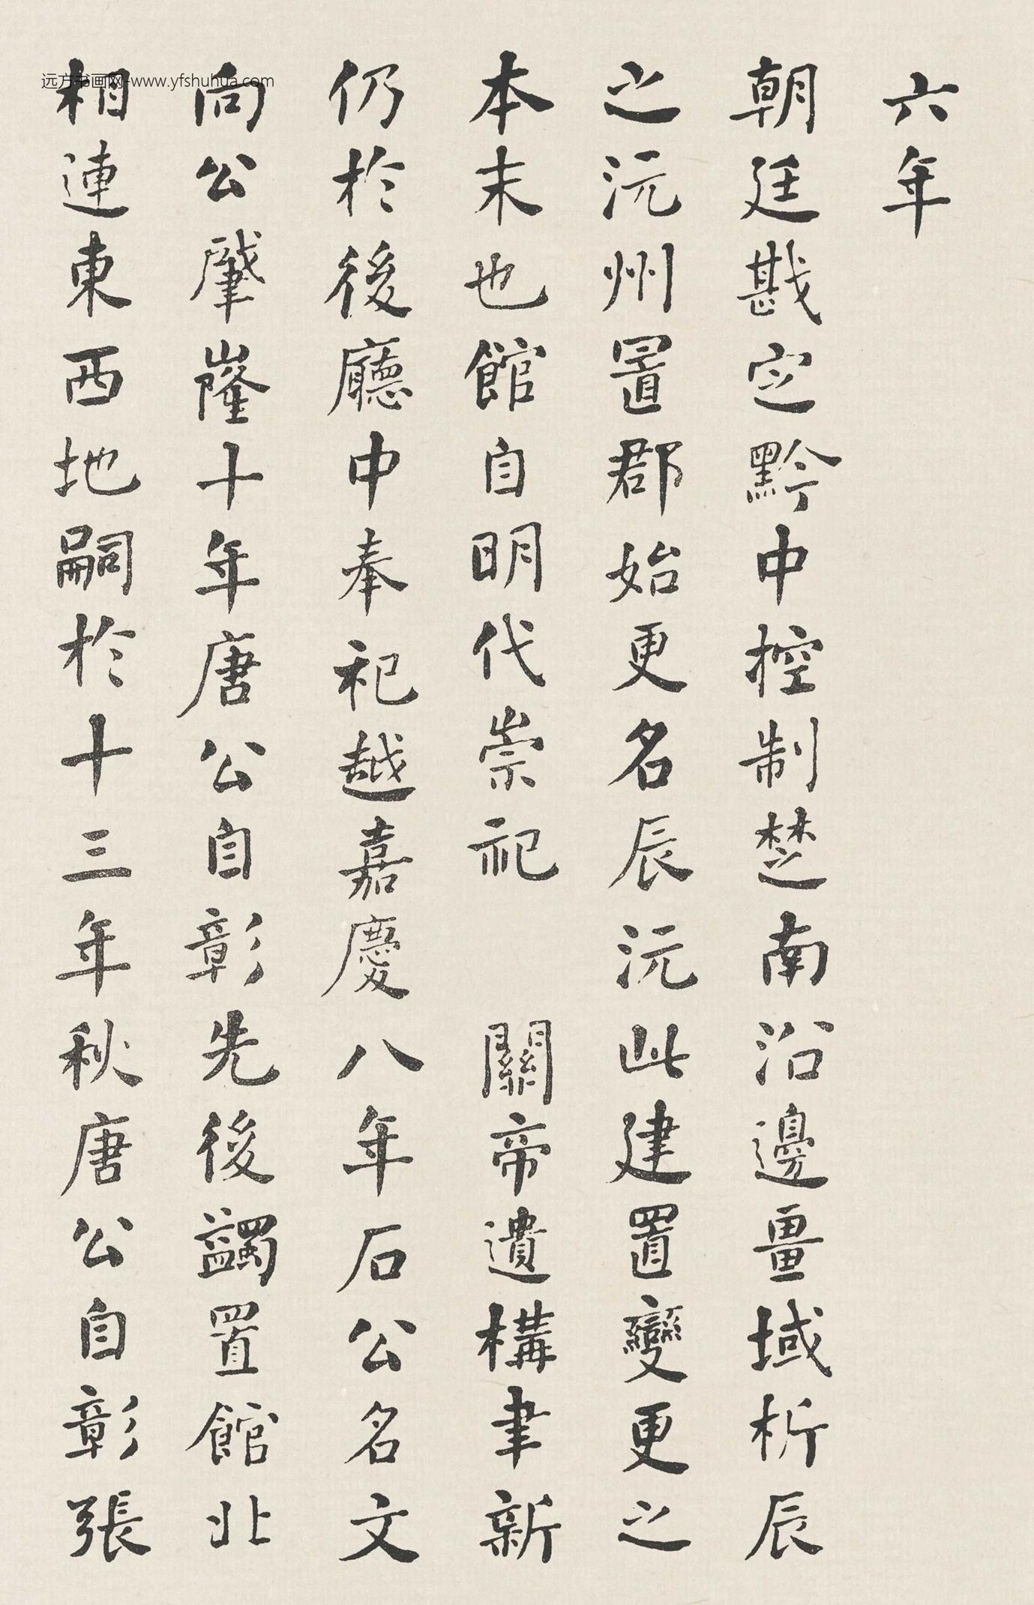 六年
朝廷戡定黔中控制楚南沿邊畺域析辰
之沅州置郡始更名辰沅此建置變更之
本末也館自明代崇祀 關帝遺構聿新
仍於後廳中奉祀越嘉慶八年石公名文
向公肇隆十年唐公自彰先後蠲置館北
相連東西地嗣於十三年秋唐公自彰張
远方书画网-www.yfshuhua.com